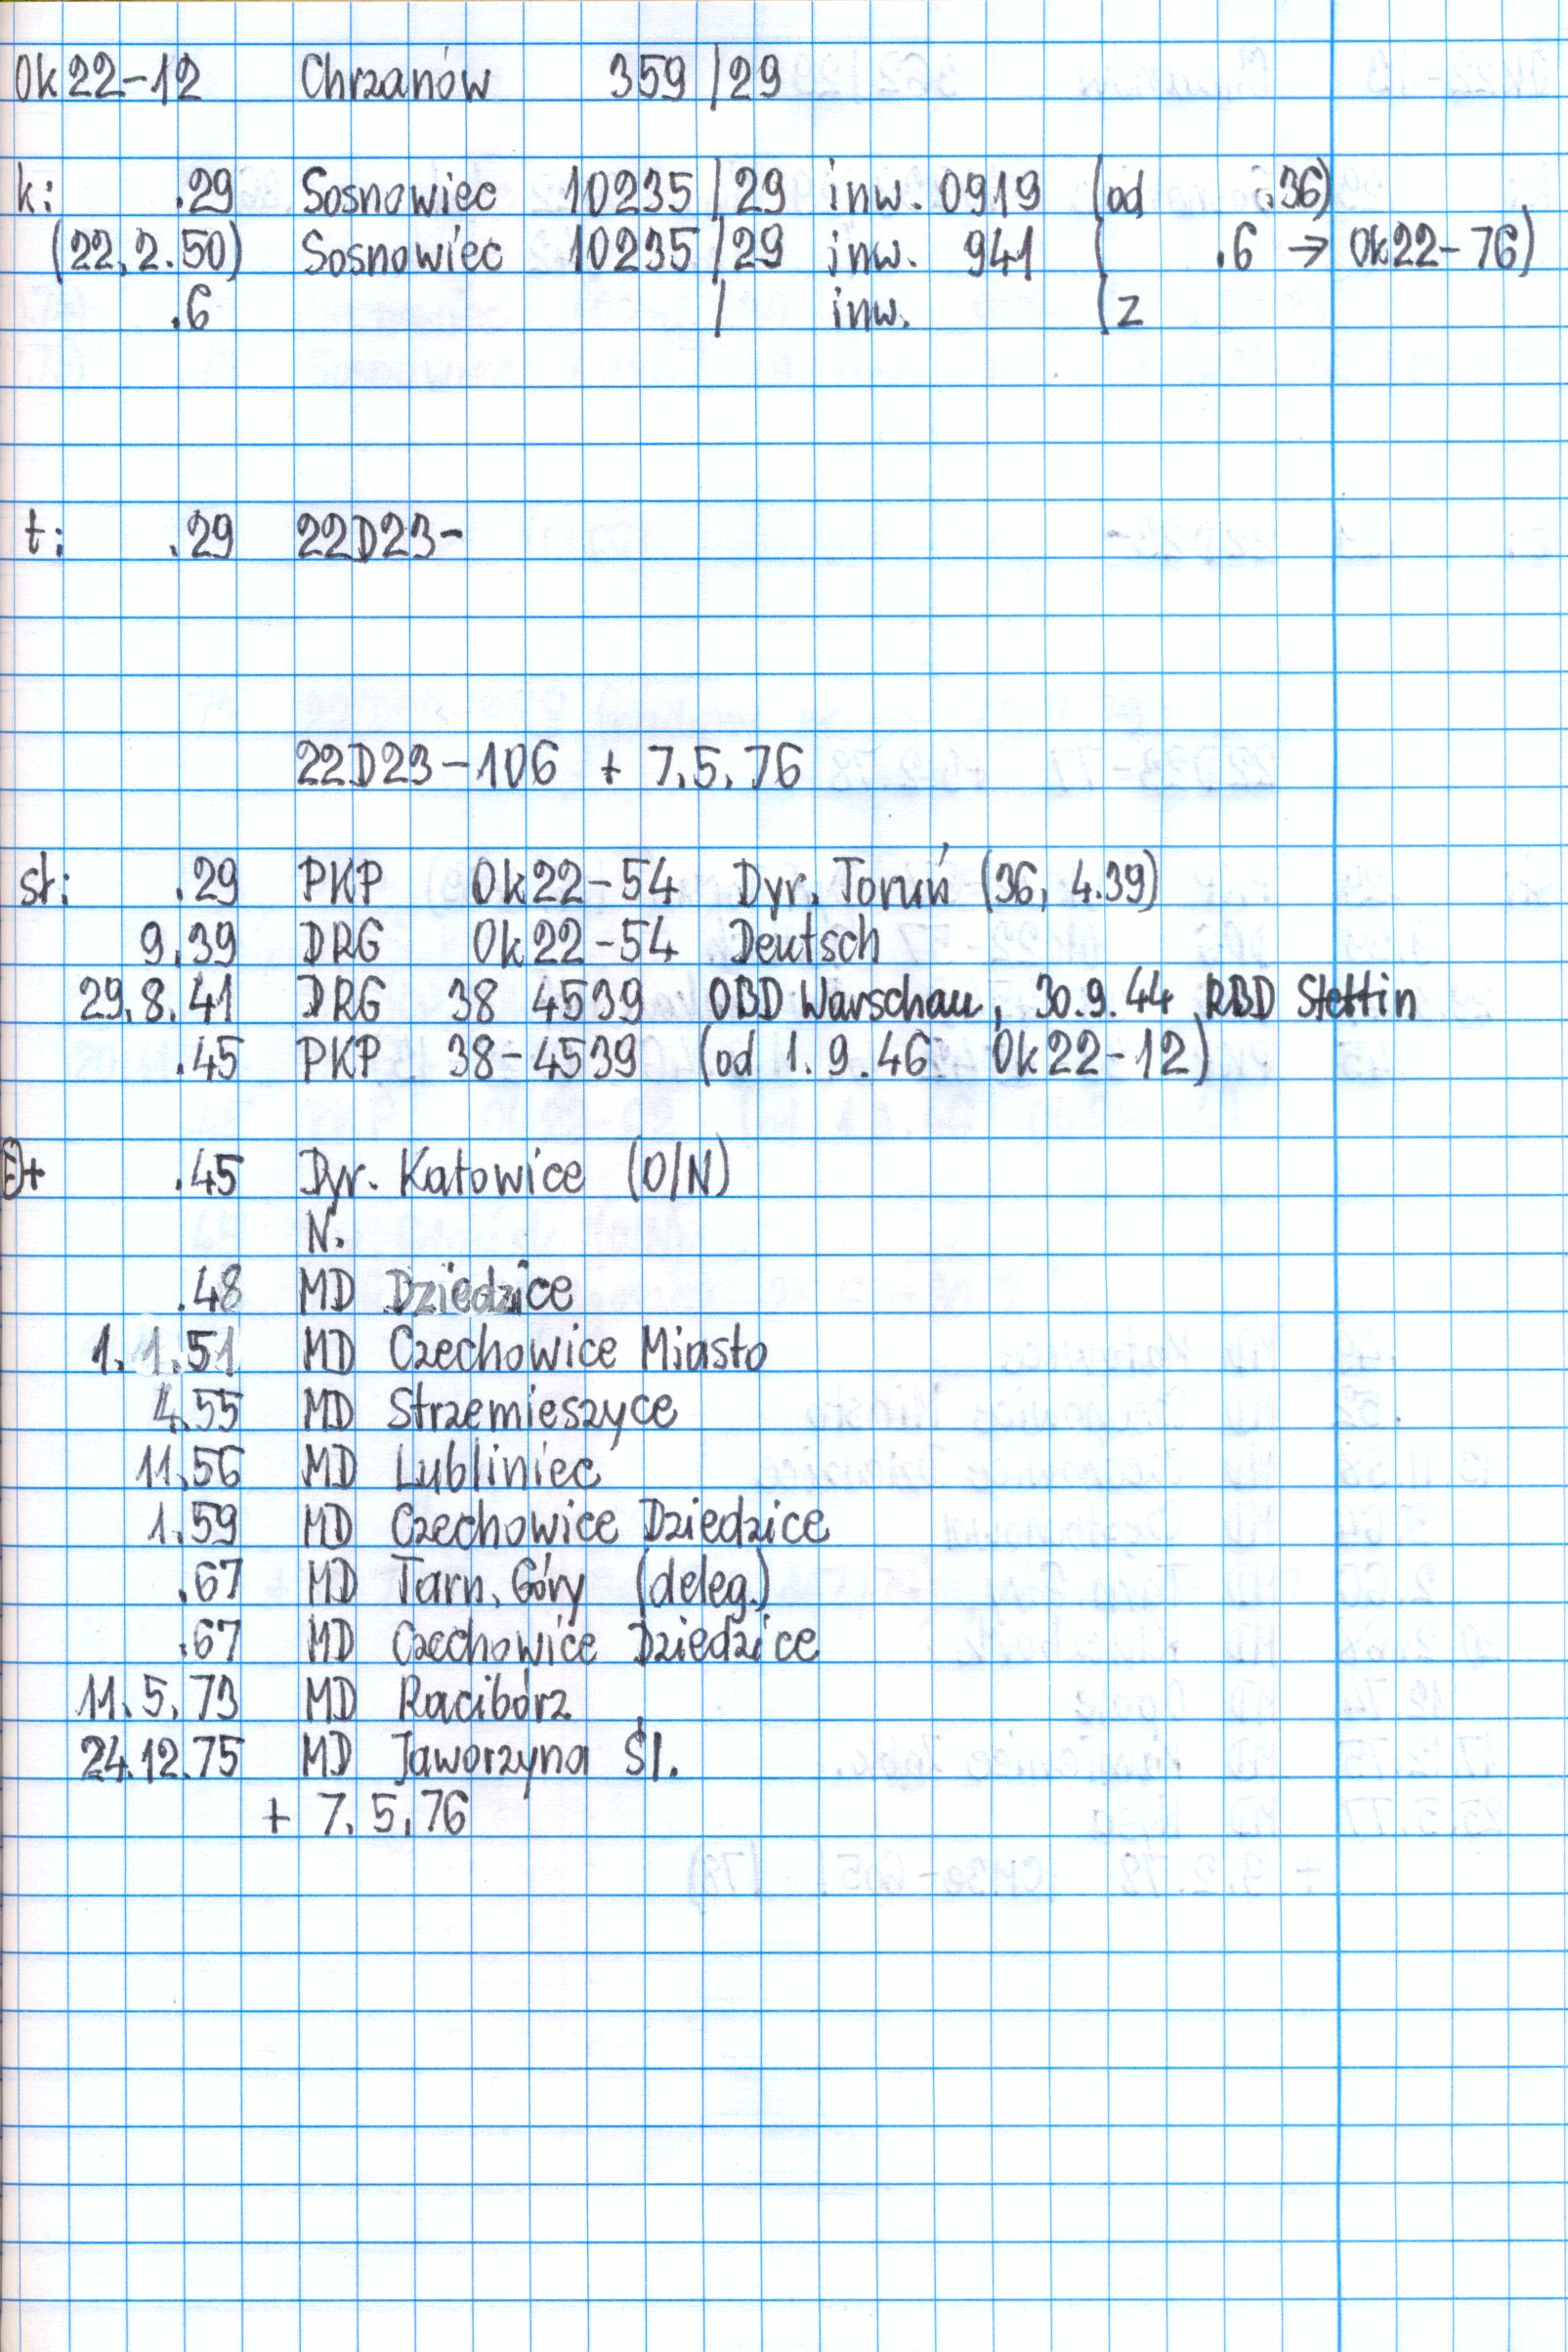 Ok22-12 Chrzanów 359/29
k: .29 Sosnowiec 10235/29 inw. 0919 (od .36)
(22.2.50) Sosnowiec 10235/29 inw. 941 ( .6 → Ok22-76)
.6 / inw. (z
t: .29 22D23-
22D23-106 + 7.5.76
st: .29 PKP Ok22-54 Dyr. Toruń (36, 4.39)
9.39 DRG Ok22-54 Deutsch
29.8.41 DRG 38 4539 OBD Warschau, 30.9.44 RBD Stettin
.45 PKP 38-4539 (od 1.9.46: Ok22-12)
+ .45 Dyr. Katowice (O/N)
N.
.48 MD Dziedzice
1.1.51 MD Czechowice Miasto
4.55 MD Strzemieszyce
11.56 MD Lubliniec
1.59 MD Czechowice Dziedzice
.67 MD Tarn. Góry (deleg.)
.67 MD Czechowice Dziedzice
11.5.73 MD Racibórz
24.12.75 MD Jaworzyna Śl.
+ 7.5.76